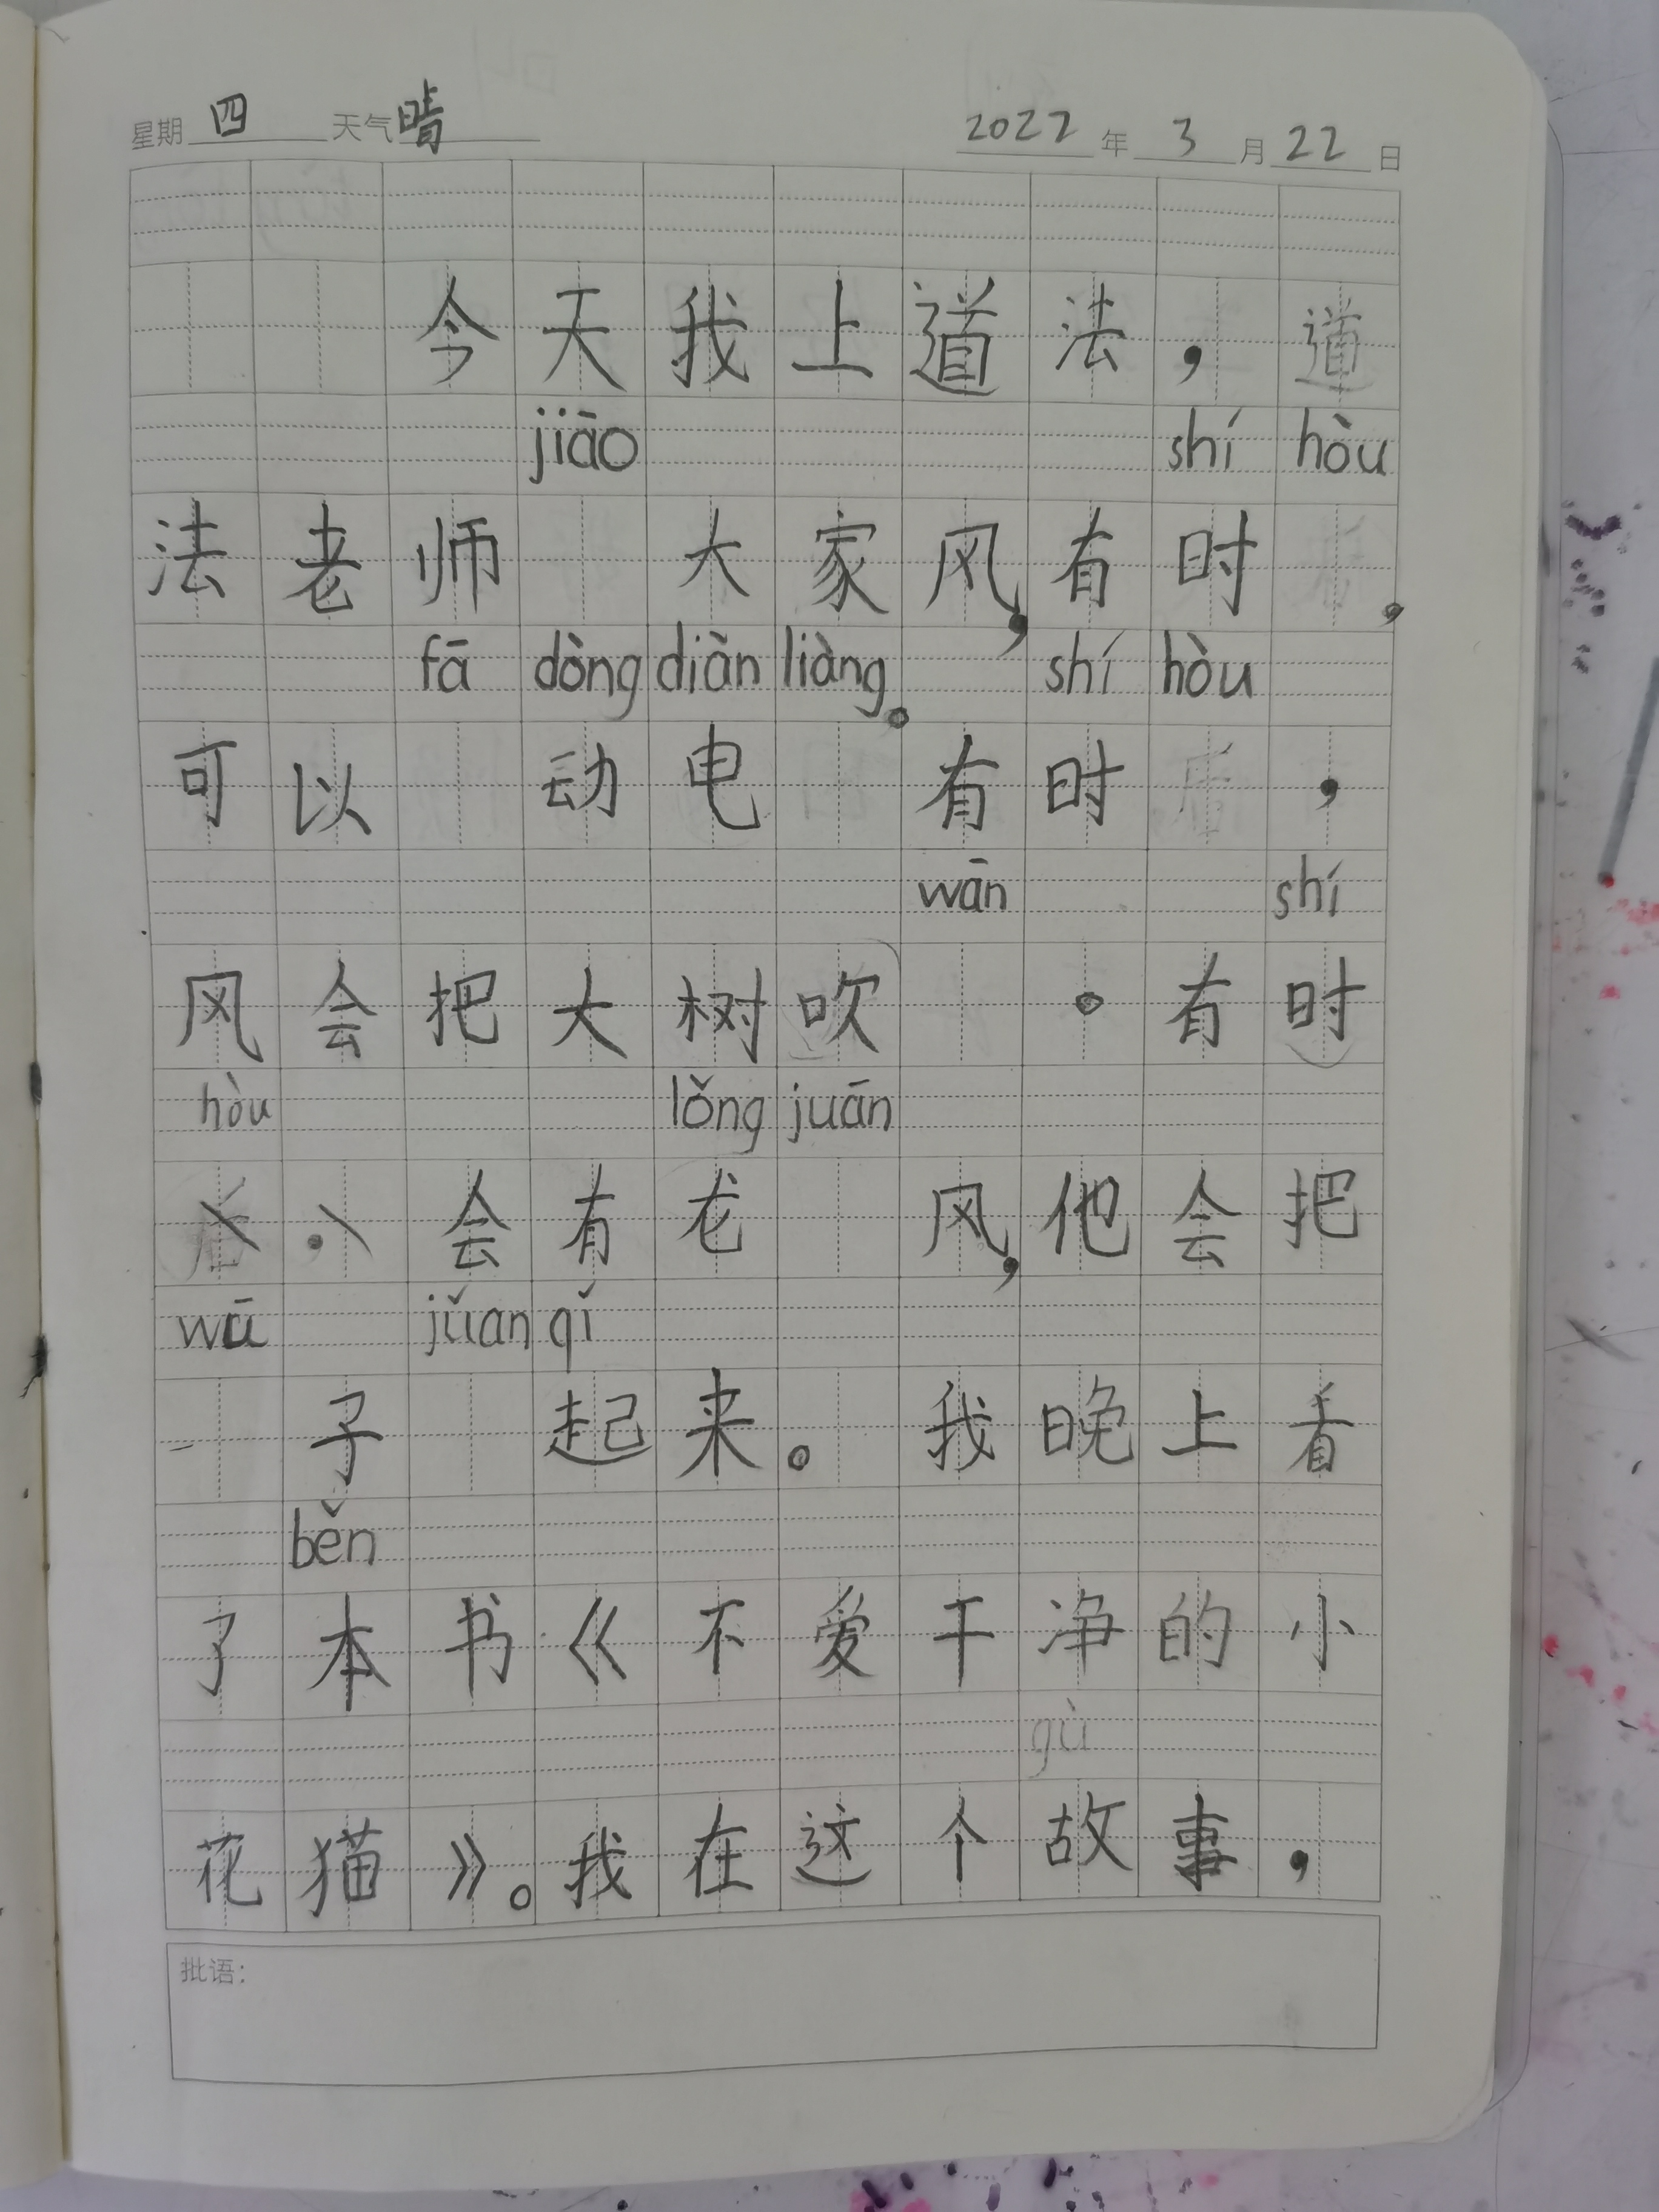 星期 四 天气 晴 2022 年 3 月 22 日
今天我上道法，道
jiāo shí hòu
法老师 大家风，有时 ，
fā dòng diàn liàng shí hòu
可以 动电 。有时后，
wān shí
风会把大树吹 。有时
hòu lǒng juān
、会有龙 风，他会把
wū juǎn qǐ
子 起来。我晚上看
běn
了本书《不爱干净的小
gù
花猫》。我在这个故事，
批语：